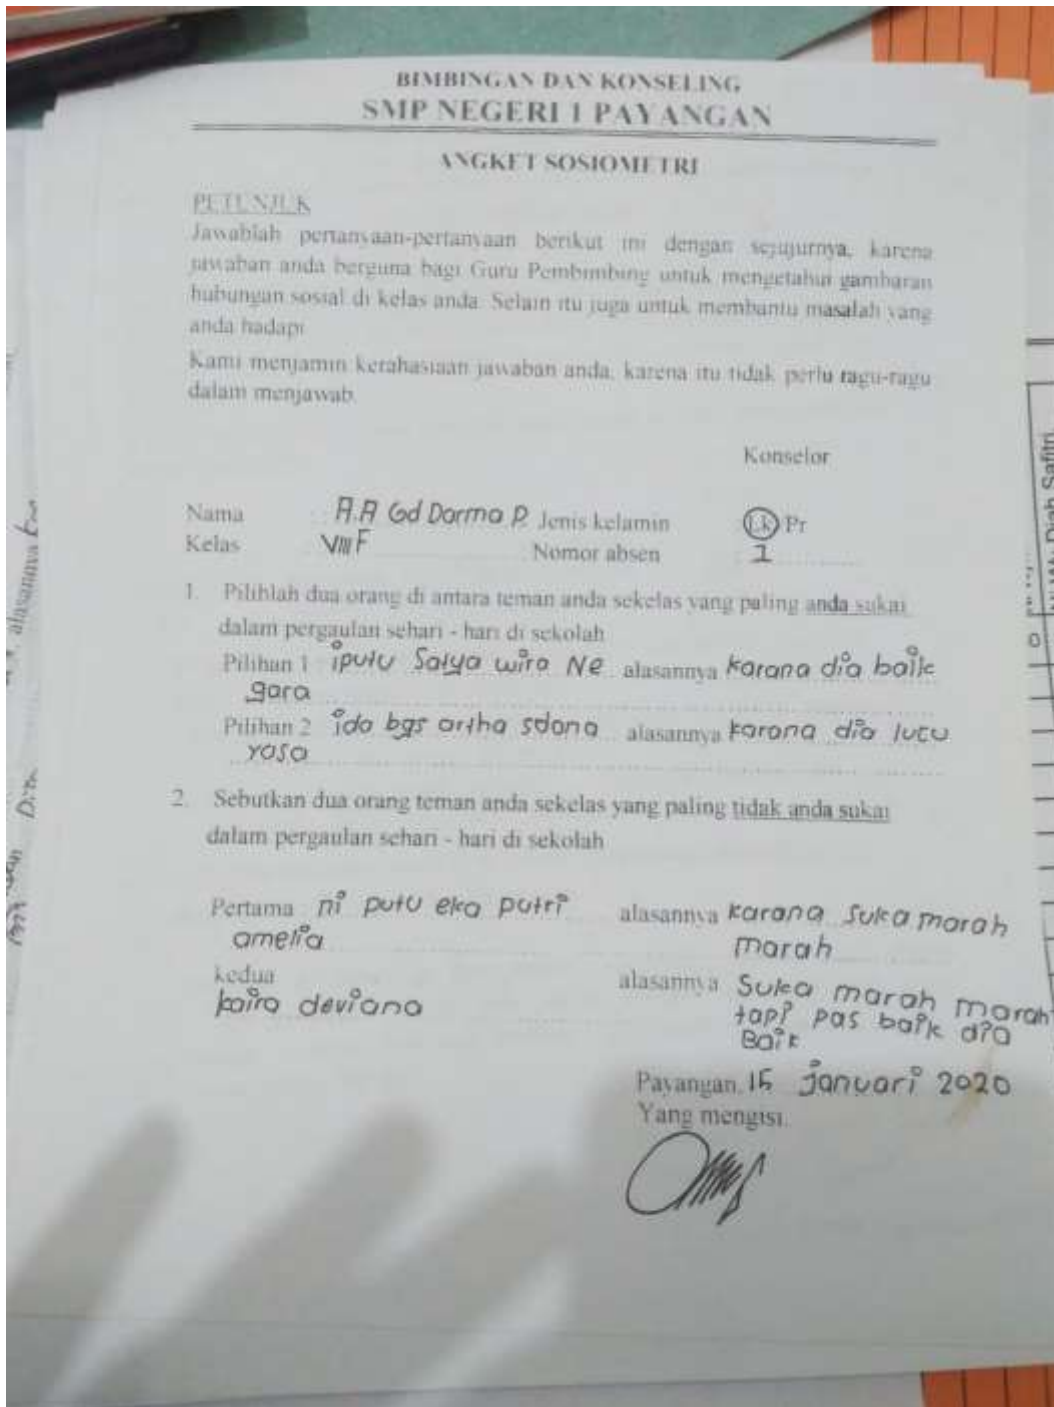 BIMBINGAN DAN KONSELING
SMP NEGERI 1 PAYANGAN
ANGKET SOSIOMETRI
PETUNJUK
Jawablah pertanyaan-pertanyaan berikut ini dengan sejujurnya, karena
jawaban anda berguna bagi Guru Pembimbing untuk mengetahui gambaran
hubungan sosial di kelas anda. Selain itu juga untuk membantu masalah yang
anda hadapi
Kami menjamin kerahasiaan jawaban anda, karena itu tidak perlu ragu-ragu
dalam menjawab.
Konselor
Nama : A.A Gd Darma P. Jenis kelamin Lk Pr
Kelas : VIII F Nomor absen : 1
1. Pilihlah dua orang di antara teman anda sekelas yang paling anda sukai
dalam pergaulan sehari - hari di sekolah
Pilihan 1 iputu Satya wira Ne alasannya karana dia baik
gara
Pilihan 2 ida bgs artha sdana alasannya karana dia lucu
yasa
2. Sebutkan dua orang teman anda sekelas yang paling tidak anda sukai
dalam pergaulan sehari - hari di sekolah
Pertama ni putu eka putri alasannya karana suka marah
amelia marah
kedua alasannya Suka marah marah
kaira deviana tapi pas baik dia
Baik
Payangan, 15 januari 2020
Yang mengisi.
alasannya
Diah Safitri